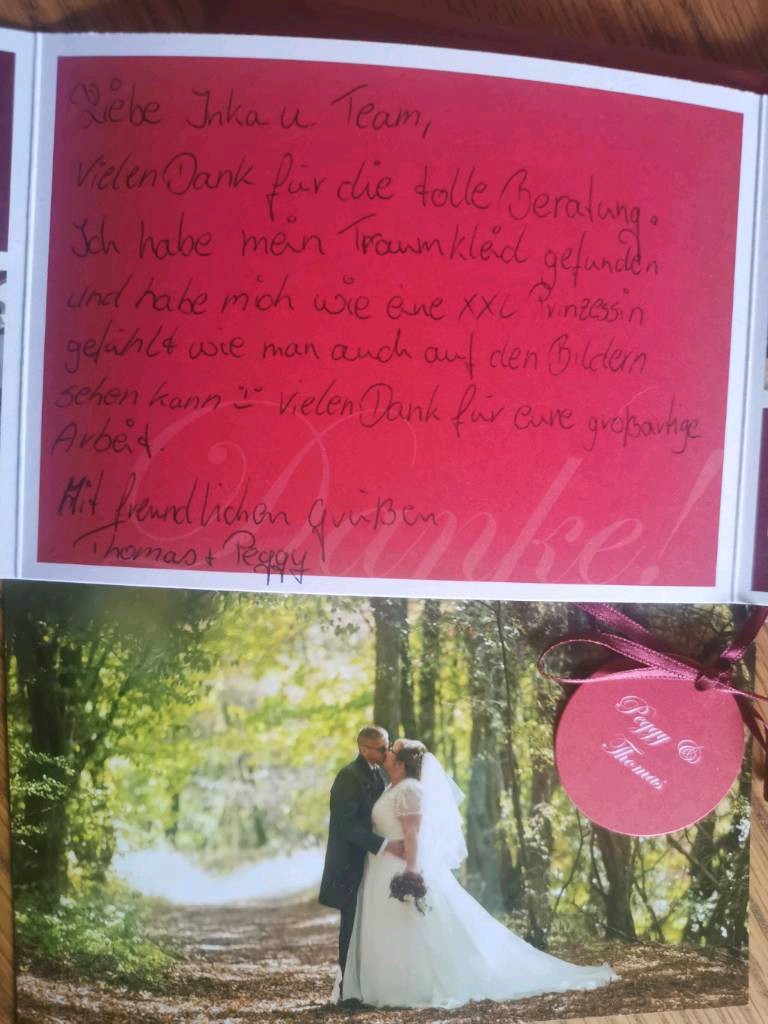 Liebe Inka u. Team,
Vielen Dank für die tolle Beratung.
Ich habe mein Traumkleid gefunden
und habe mich wie eine XXL Prinzessin
gefühlt wie man auch auf den Bildern
sehen kann :) Vielen Dank für eure großartige
Arbeit.
Mit freundlichen Grüßen
Thomas + Peggy
Danke!
Peggy &
Thomas